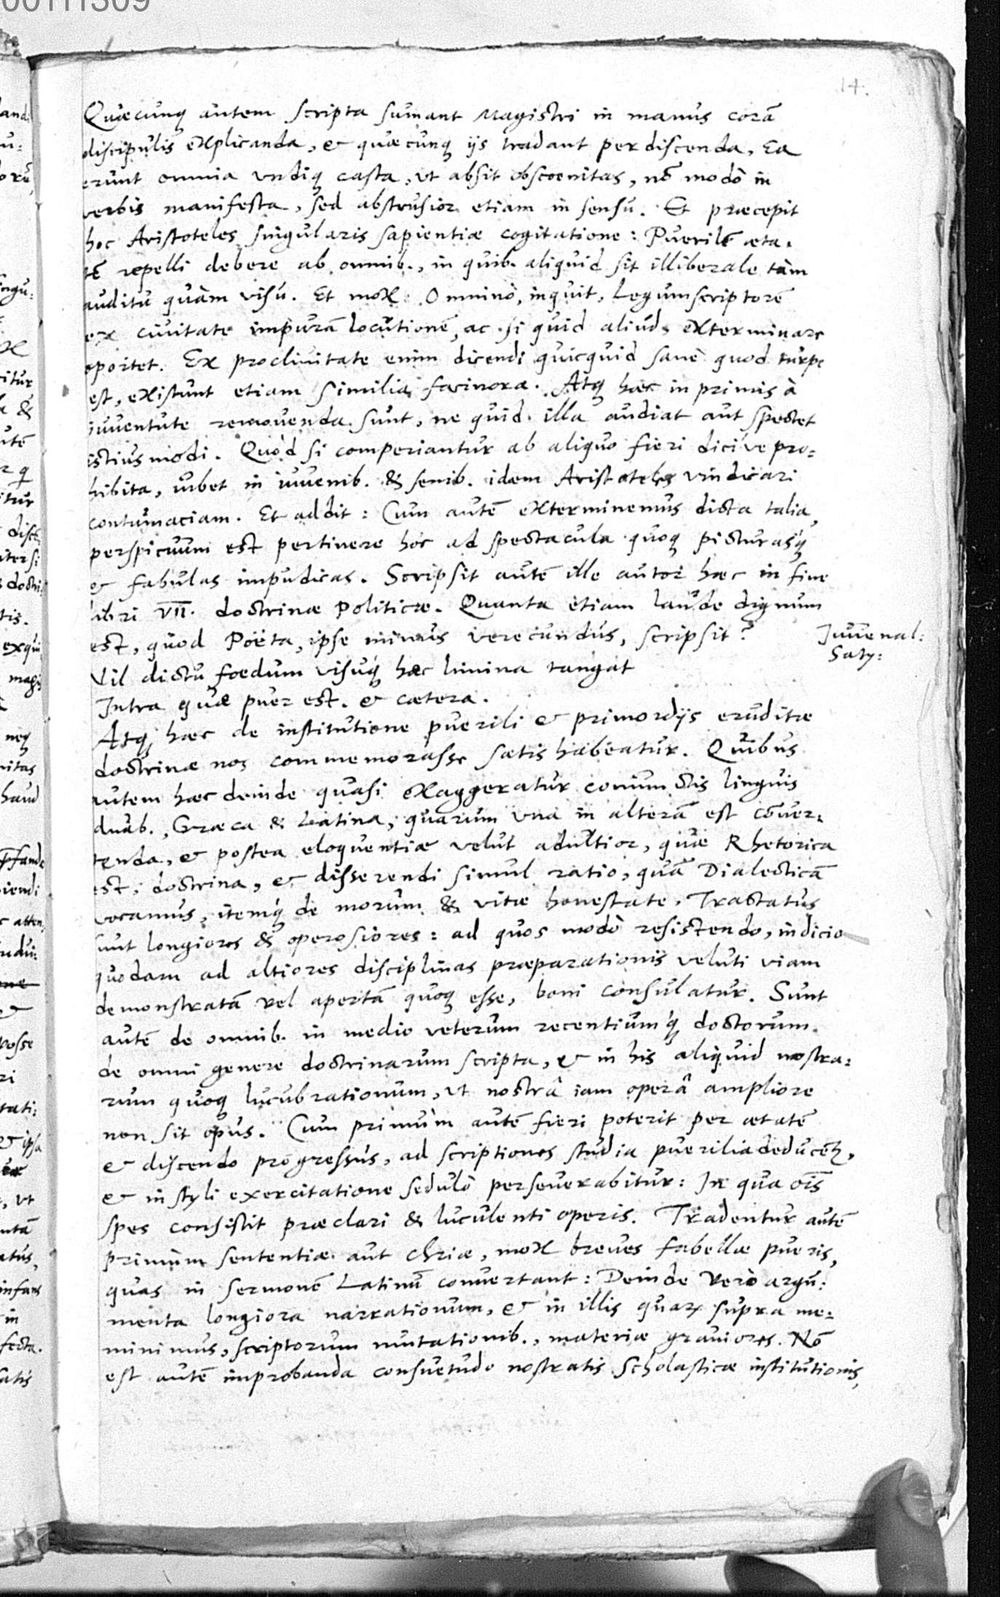 00111309
14.
Quæcunq̃ autem scripta sumant Magistri in manus corã
discipulis explicanda, & quæcunq̃ ijs tradant perdiscenda, Ea
erunt omnia vndiq̃ casta, vt absit obscoenitas, nõ modò in
verbis manifesta, sed abstrusior etiam in sensu. Et præcepit
hoc Aristoteles singularis sapientiæ cogitatione: Puerilẽ æta-
tẽ repelli debere ab omnib., in quib. aliquid sit illiberale tàm
auditu quàm visu. Et mox: Omninò, inquit, Legumscriptorẽ
ex ciuitate impurã locutionẽ, ac si quid aliud, exterminare
oportet. Ex procliuitate enim dicendi quicquid sanè quod turpe
est, existunt etiam similia facinora. Atq̃ hæc in primis à
iuuentute remouenda sunt, ne quid illa audiat aut spectet
istiusmodi. Quòd si comperiantur ab aliquo fieri diciue pro-
hibita, iubet in iuuenib. & senib. idem Aristoteles vindicari
contumaciam. Et addit: Cum autẽ exterminemus dicta talia,
perspicuum est pertinere hoc ad spectacula quoq̃ picturasq́
& fabulas impudicas. Scripsit autẽ ille autor hæc in fine
libri VII. doctrinæ Politicæ. Quanta etiam laude dignum
est, quod Poëta, ipse minus verecundus, scripsit?
Juuenal:
Saty:
Nil dictu foedum visuq́ hæc limina tangat
Intra quæ puer est. & cætera.
Atq̃ hæc de institutione puerili & primordijs eruditæ
doctrinæ nos commemorasse satis habeatur. Quibus
autem hæc deinde quasi exaggeratur coniunctis linguis
duab., Græca & Latina, quarum vna in alterã est cõuer-
tenda, & postea eloquentiæ velut adultior, quæ Rhetorica
est, doctrina, & disserendi simul ratio, quã Dialecticã
vocamus, itemq́ de morum & vitæ honestate, Tractatus
sunt longiores & operosiores: ad quos modò resistendo, indicio
quodam ad altiores disciplinas præparationis veluti viam
demonstratã vel apertã quoq̃ esse, boni consulatur. Sunt
autẽ de omnib. in medio veterum recentiumq́ doctorum
de omni genere doctrinarum scripta, & in his aliquid nostra-
rum quoq̃ lucubrationum, vt nostrâ iam operâ ampliore
non sit opus. Cum primùm autẽ fieri poterit per ætatẽ
& discendo progressus, ad scriptiones studia puerilia deducẽt᷑,
& in styli exercitatione sedulò perseuerabitur: In qua oĩs
spes consistit præclari & luculenti operis. Tradentur autẽ
primùm sententiæ aut chriæ, mox breues fabellæ pueris,
quas in sermonẽ Latinũ conuertant: Deinde verò argu-
menta longiora narrationum, & in illis quarũ supra me-
minimus, scriptorum mutationib., materiæ grauiores. Nõ
est autẽ improbanda consuetudo nostratis Scholasticæ institutionis,